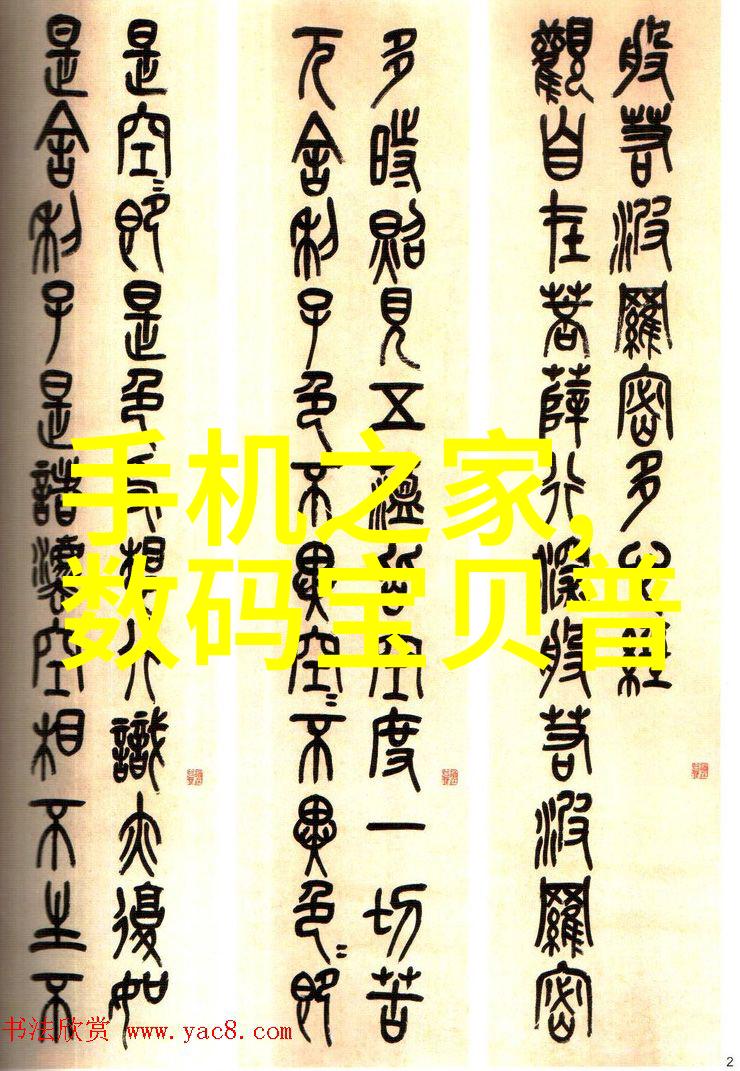 般若波羅密多心經
觀自在菩薩行深般若波羅密
多時照見五蘊皆空度一切苦
厄舍利子色不異空〻不異色〻即
是空〻即是色受想行識亦復如
是舍利子是諸灋空相不生不
手机之家,
数码宝贝普
书法欣赏 www.yac8.com
2